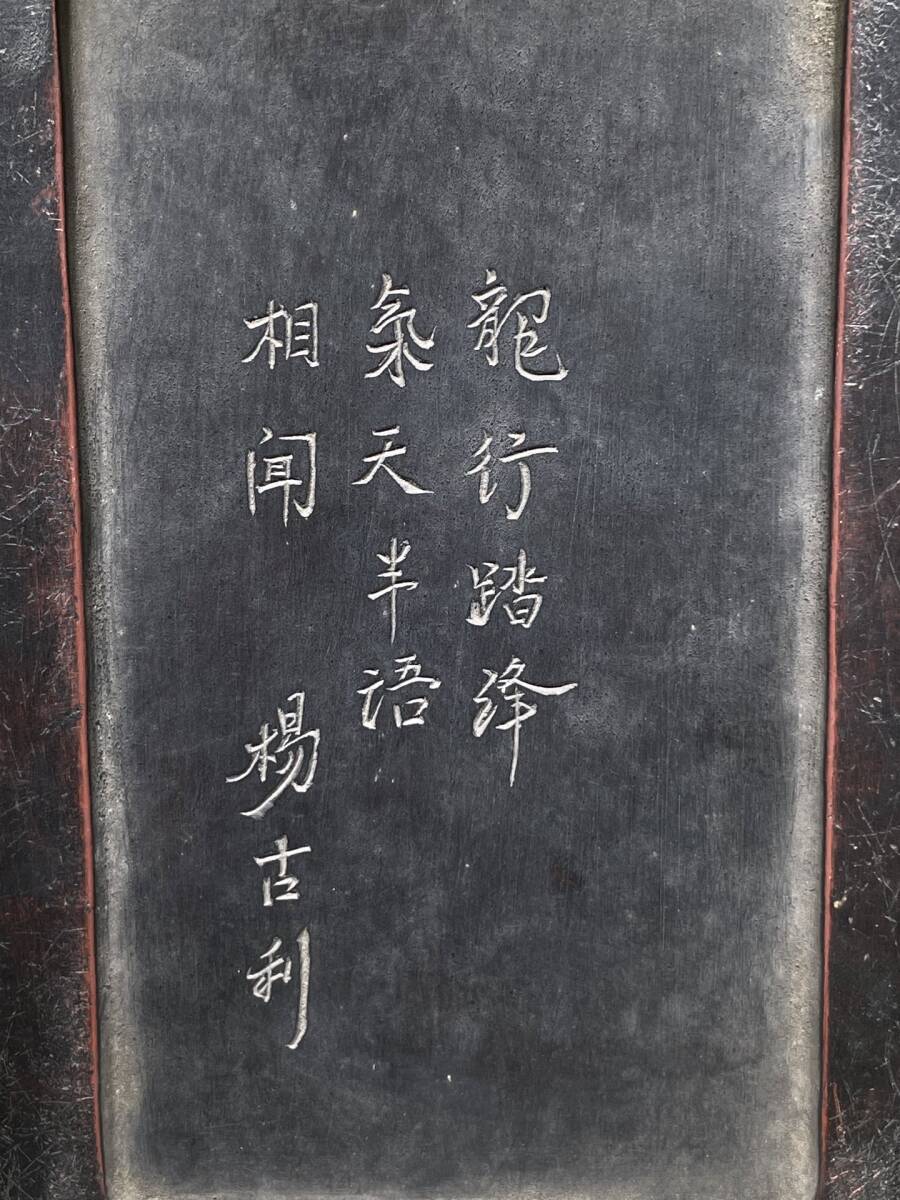 龍行踏絳
氣天半語
相聞
楊古利